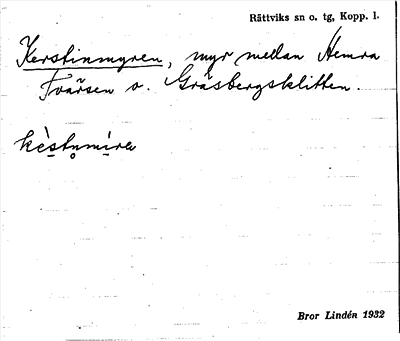 Rättviks sn o. tg, Kopp. l.
Kerstinmyren, myr mellan Hemra
Tvärsen o. Gräsbergsklitten.
kèstn̥mìra
Bror Lindén 1932